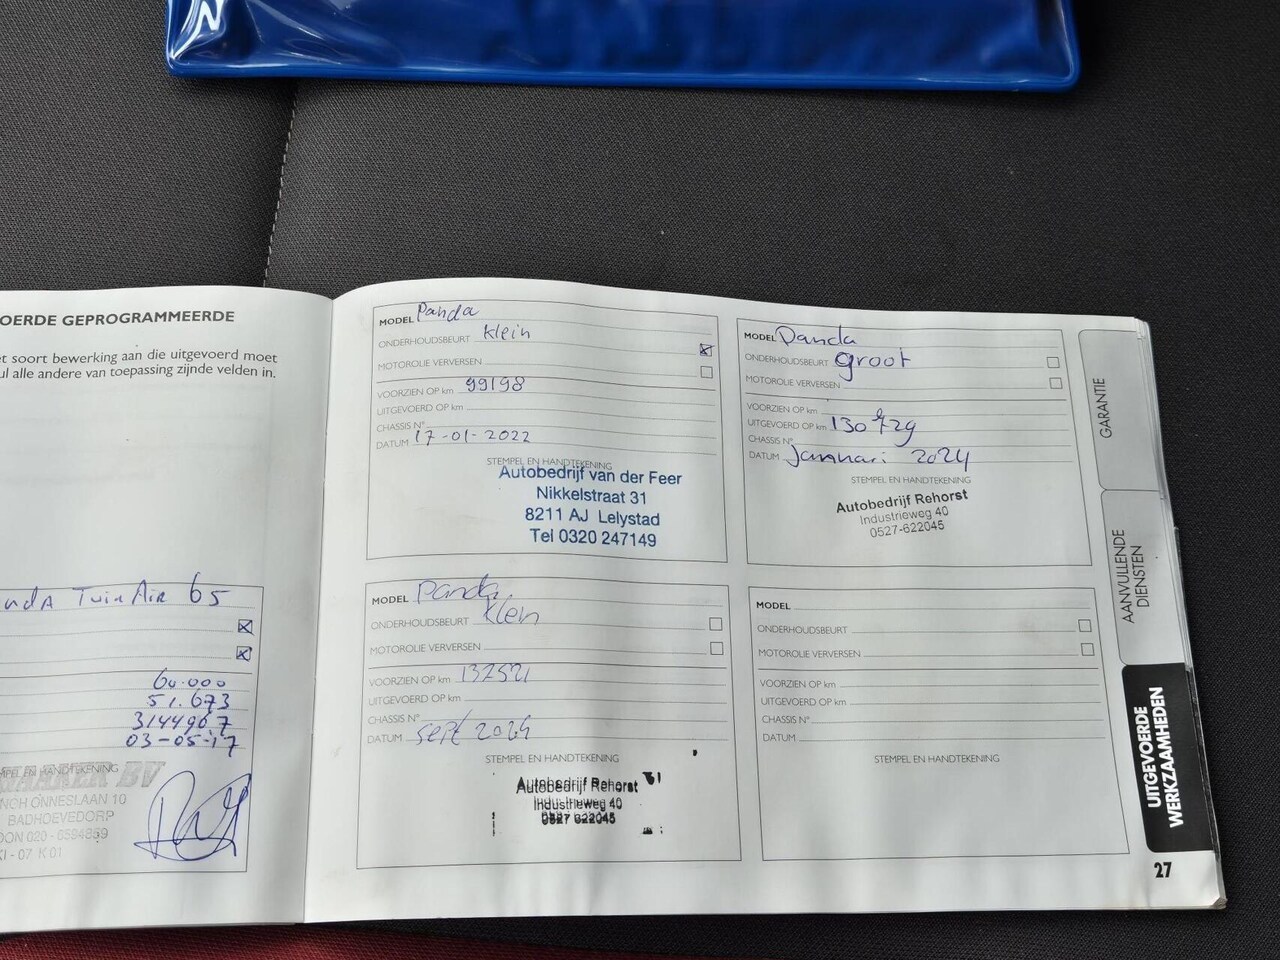 OERDE GEPROGRAMMEERDE
et soort bewerking aan die uitgevoerd moet
ul alle andere van toepassing zijnde velden in.
nda TwinAir 65
60.000
51.673
3144967
03-05-17
MPEL EN HANDTEKENING
BV
ONNESLAAN 10
BADHOEVEDORP
OON 020 - 6594859
KI - 07 K 01
MODEL Panda
ONDERHOUDSBEURT Klein
MOTOROLIE VERVERSEN
VOORZIEN OP km 99198
UITGEVOERD OP km
CHASSIS N°
DATUM 17-01-2022
STEMPEL EN HANDTEKENING
Autobedrijf van der Feer
Nikkelstraat 31
8211 AJ Lelystad
Tel 0320 247149
MODEL Panda
ONDERHOUDSBEURT groot
MOTOROLIE VERVERSEN
VOORZIEN OP km
UITGEVOERD OP km 130729
CHASSIS N°
DATUM Januari 2024
STEMPEL EN HANDTEKENING
Autobedrijf Rehorst
Industrieweg 40
0527-622045
MODEL Panda
ONDERHOUDSBEURT Klein
MOTOROLIE VERVERSEN
VOORZIEN OP km 137521
UITGEVOERD OP km
CHASSIS N°
DATUM sept 2024
STEMPEL EN HANDTEKENING
Autobedrijf Rehorst
Industrieweg 40
0527 622045
MODEL
ONDERHOUDSBEURT
MOTOROLIE VERVERSEN
VOORZIEN OP km
UITGEVOERD OP km
CHASSIS N°
DATUM
STEMPEL EN HANDTEKENING
GARANTIE
AANVULLENDE
DIENSTEN
UITGEVOERDE
WERKZAAMHEDEN
27